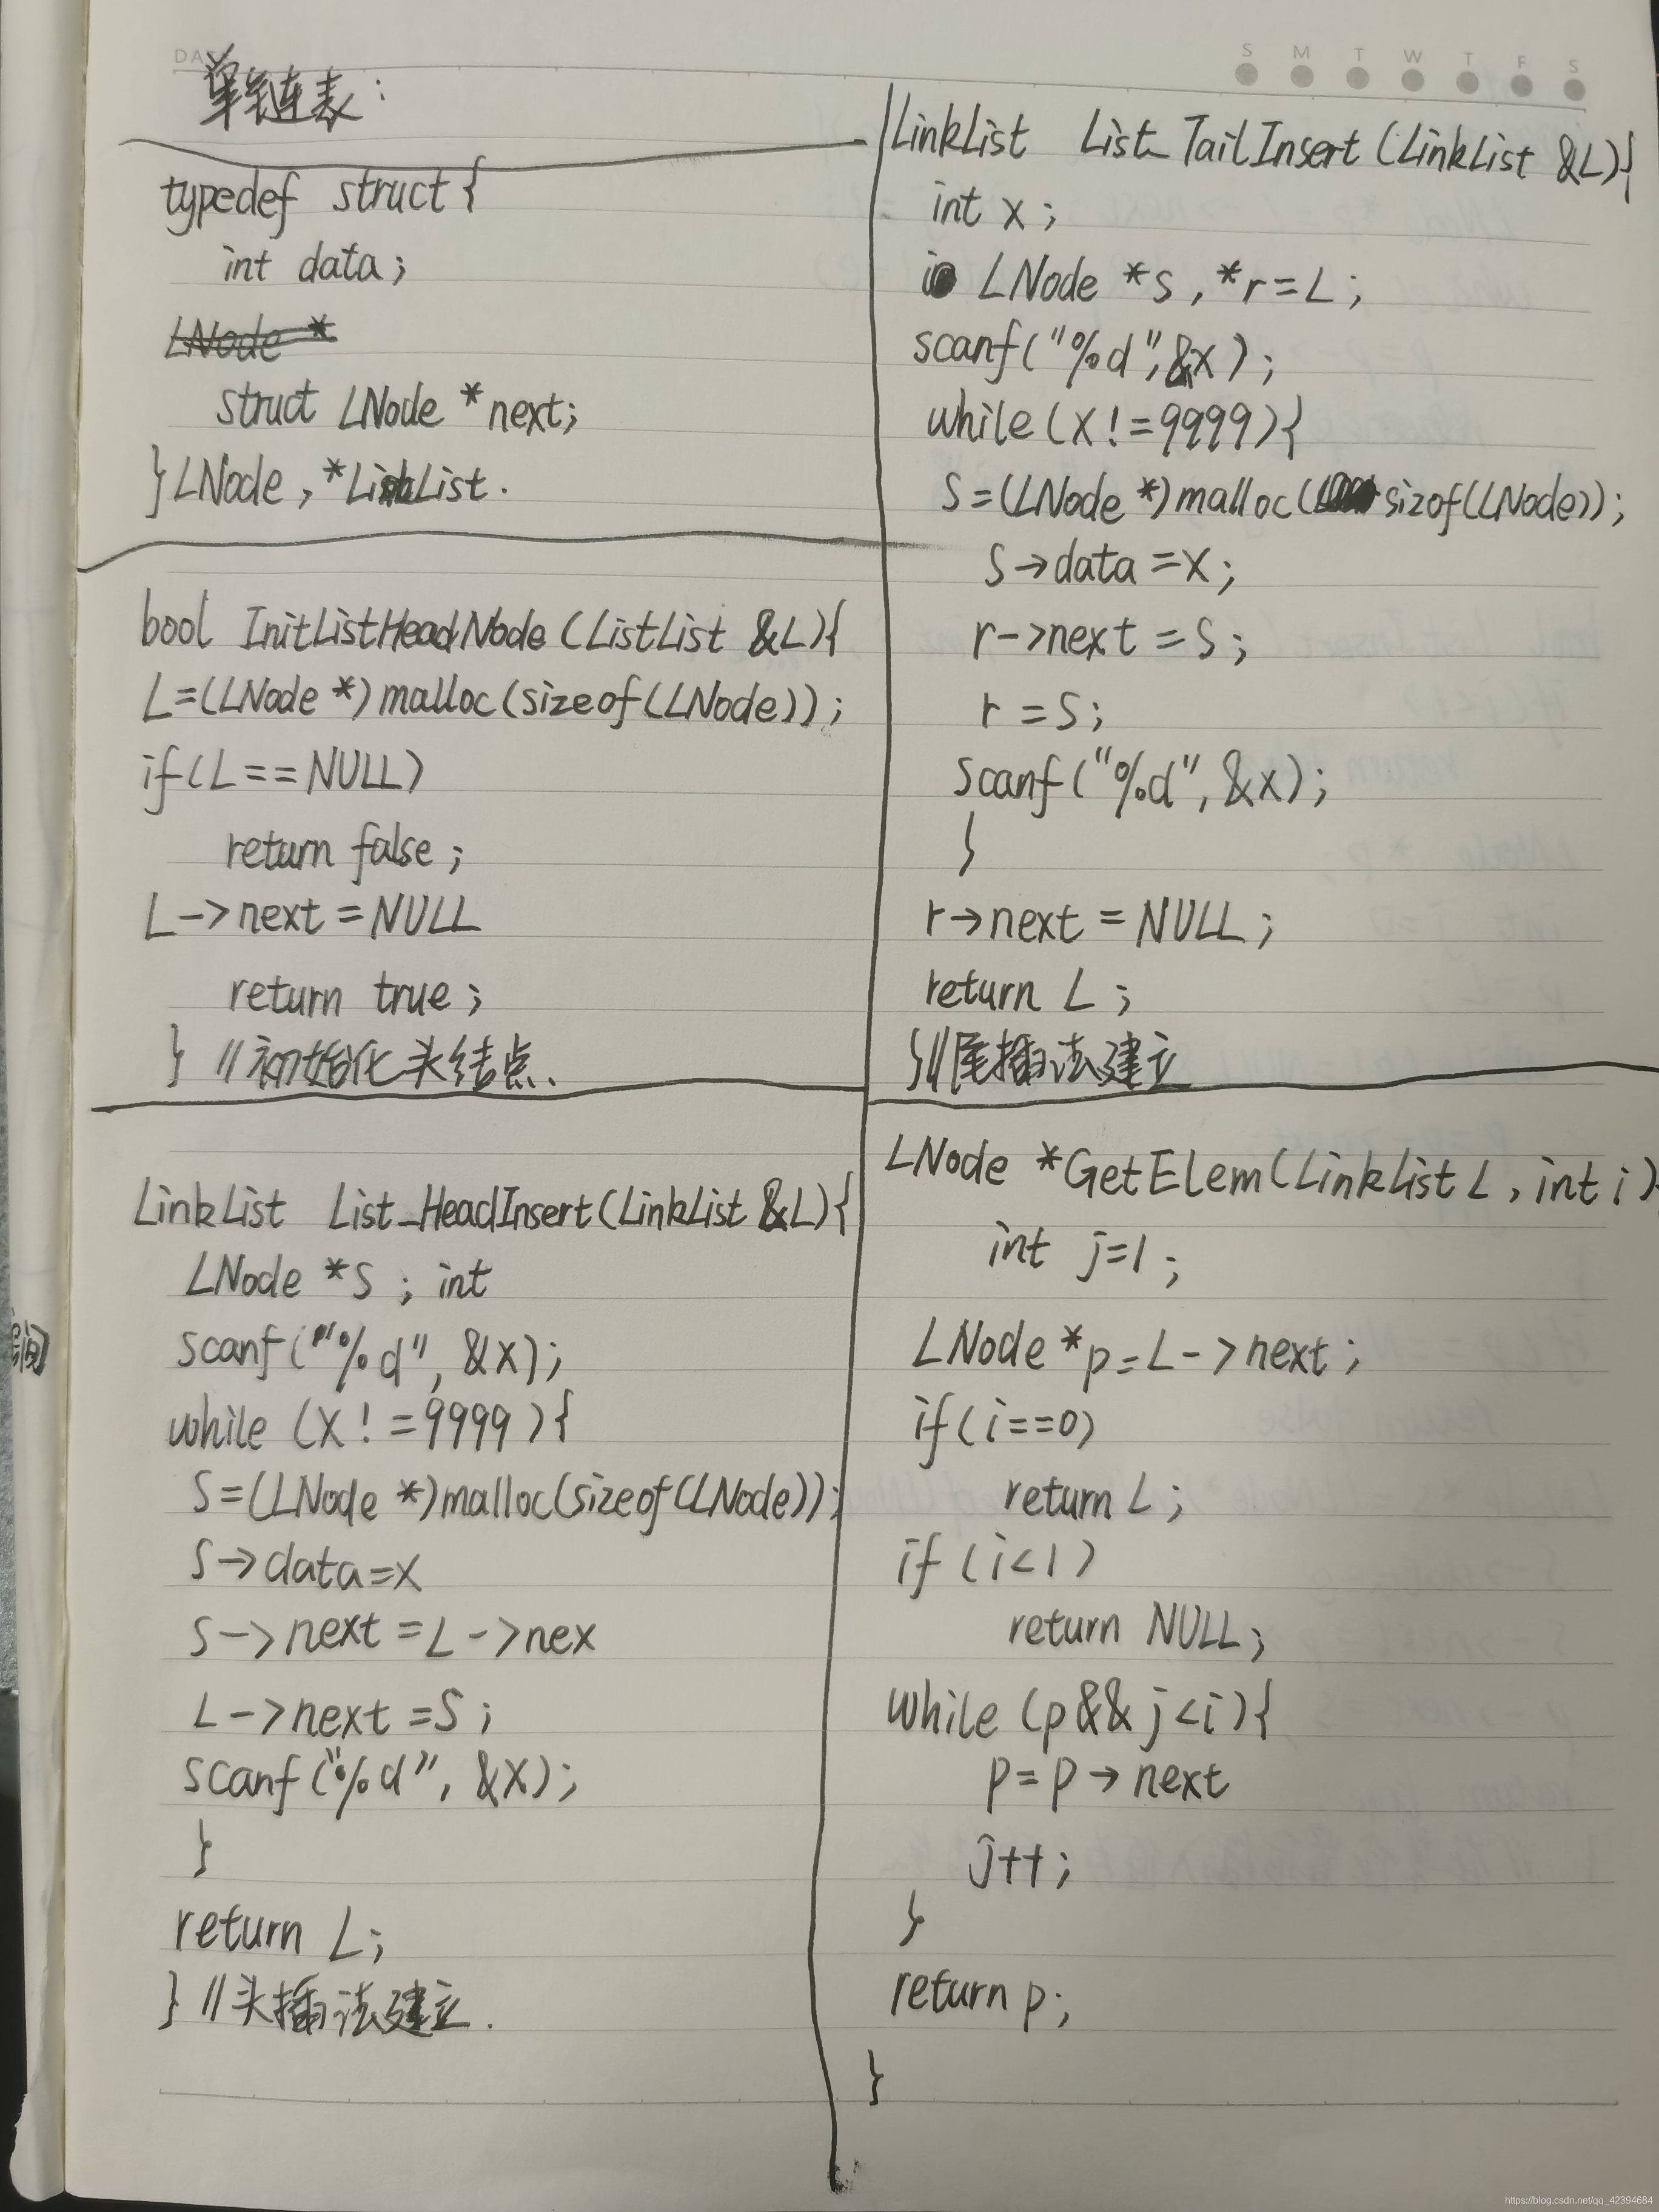 DA
S M T W T F S
单链表:
typedef struct{
int data;
LNode *
struct LNode *next;
}LNode, *LinkList.
bool InitListHeadNode(ListList &L){
L=(LNode *)malloc(sizeof(LNode));
if(L==NULL)
return false;
L->next=NULL
return true;
} //初始化头结点.
LinkList List_HeadInsert(LinkList &L){
LNode *S; int
scanf("%d", &x);
while (x!=9999){
S=(LNode *)malloc(sizeof(LNode));
S->data=x
S->next=L->nex
L->next=S;
scanf("%d", &x);
}
return L;
} //头插法建立.
LinkList List_TailInsert(LinkList &L){
int x;
LNode *s, *r=L;
scanf("%d",&x);
while(x!=9999){
S=(LNode *)malloc(sizof(LNode));
S->data=x;
r->next=S;
r=S;
scanf("%d",&x);
}
r->next=NULL;
return L;
}//尾插法建立
LNode *GetElem(LinkList L, int i){
int j=1;
LNode *p=L->next;
if(i==0)
return L;
if(i<1)
return NULL;
while (p&&j<i){
p=p->next
j++;
}
return p;
}
https://blog.csdn.net/qq_42394684